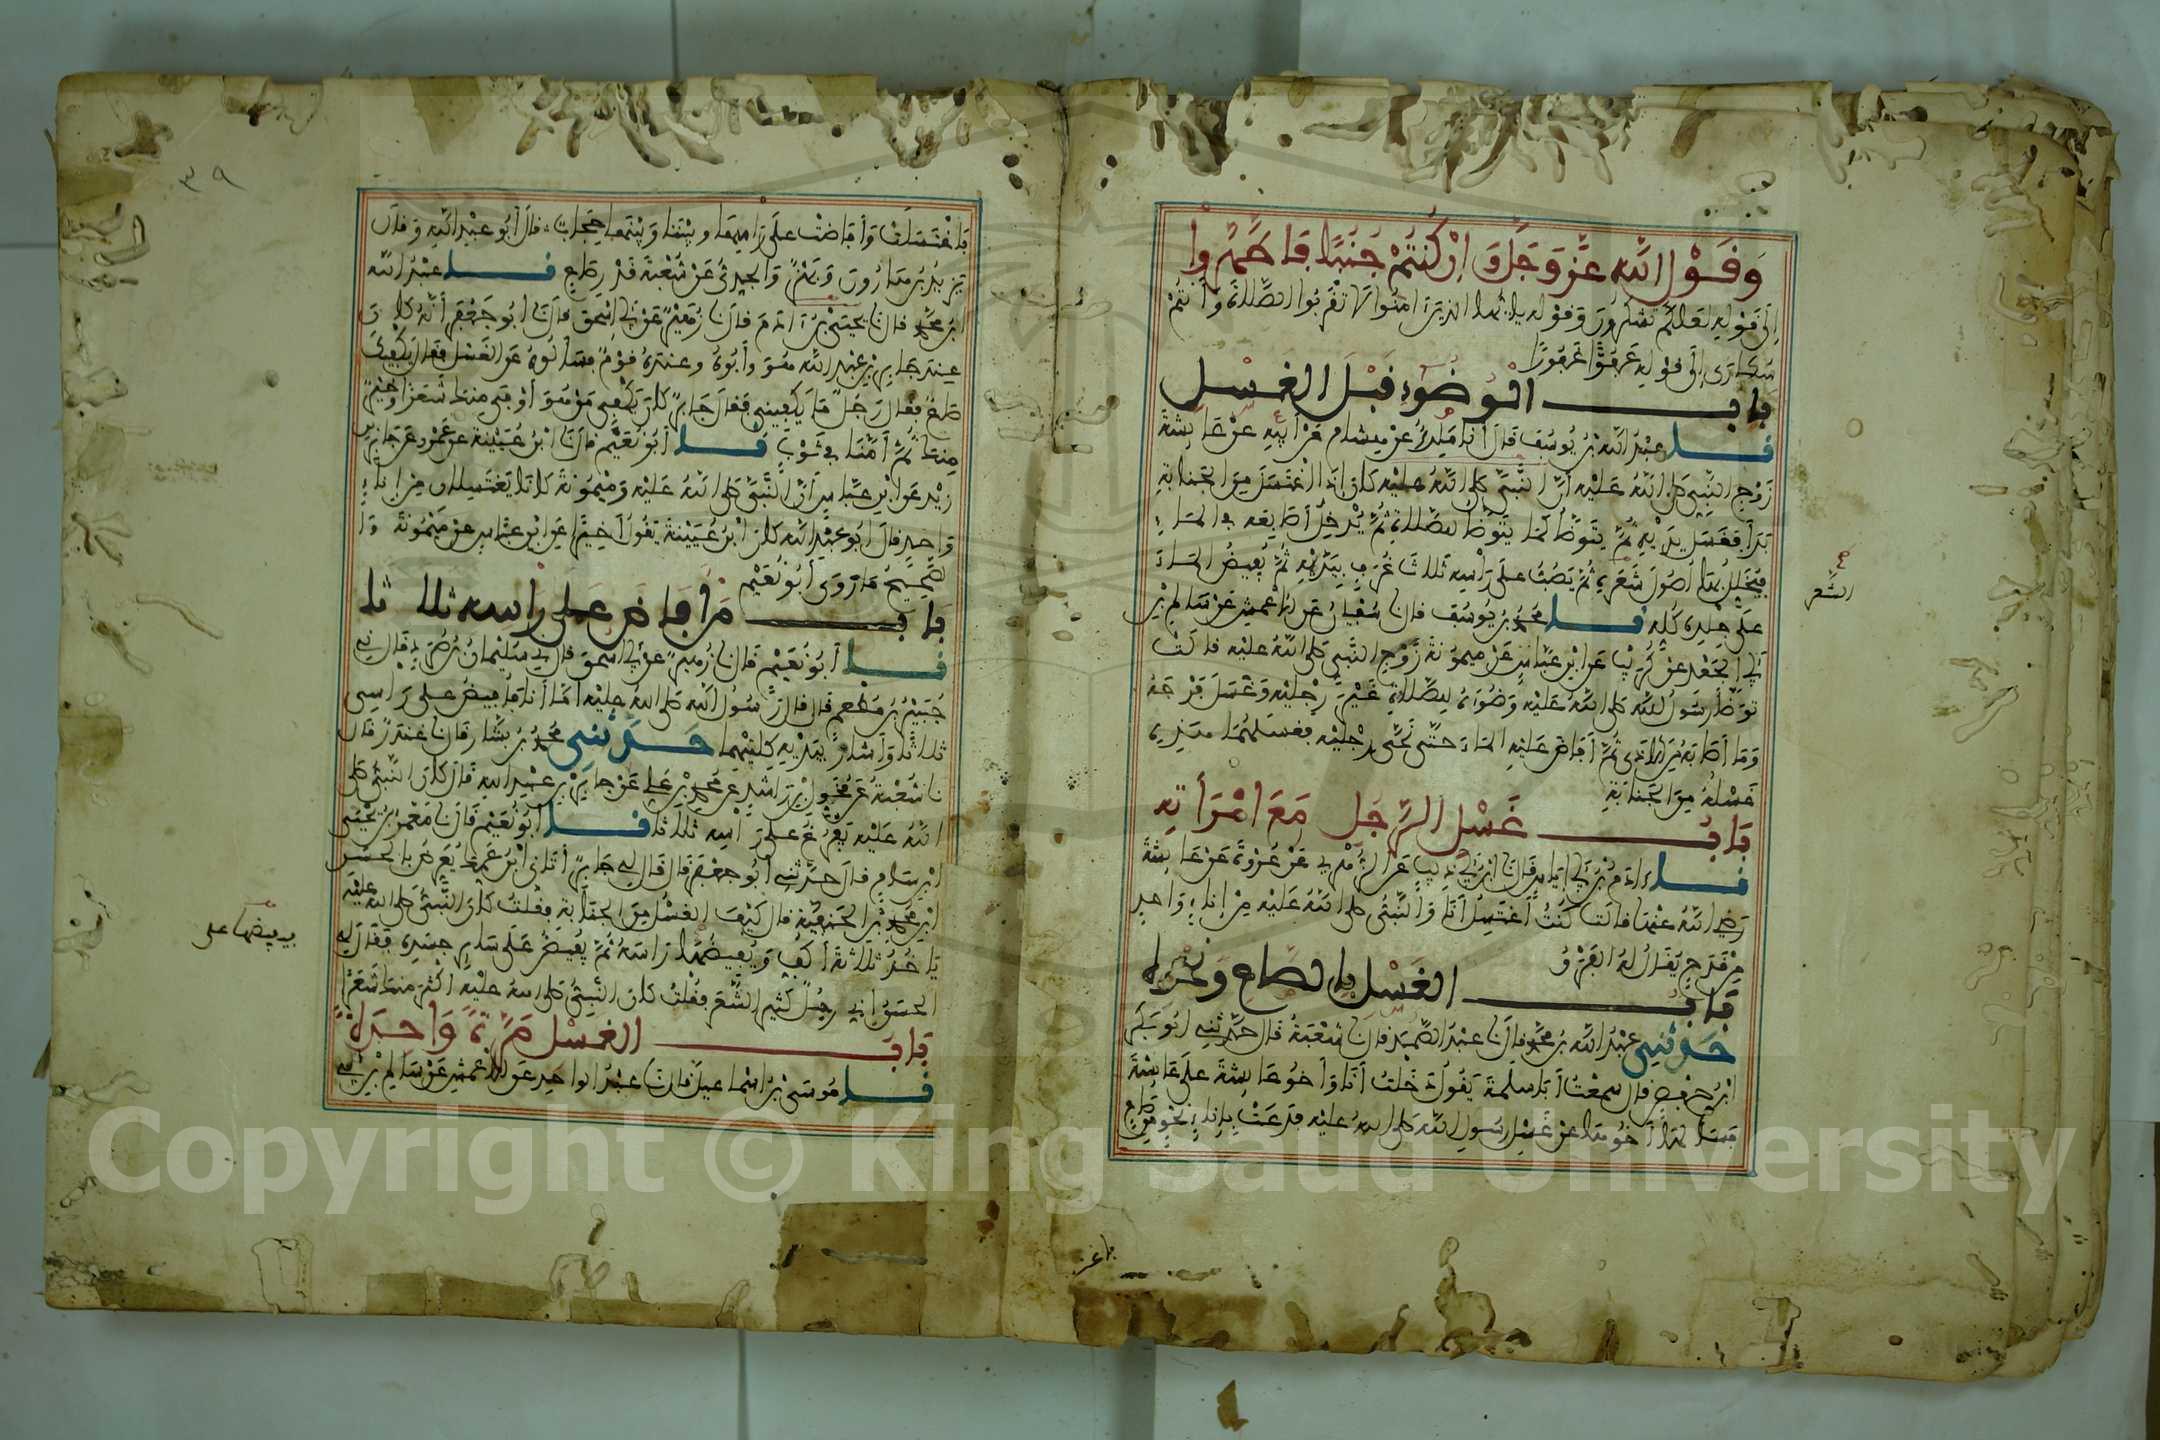 وقول الله عز وجل وإن كنتم جنبا فاطهروا
إلى قوله لعلكم تشكرون وقوله يا أيها الذين ءامنوا لا تقربوا الصلاة وأنتم
سكارى إلى قوله عفوا غفورا
باب الوضوء قبل الغسل
نا عبد الله بن يوسف قال أنا ملك عن هشام عن أبيه عن عائشة
زوج النبي صلى الله عليه أن النبي صلى الله عليه كان إذا اغتسل من الجنابة
بدأ فغسل يديه ثم يتوضأ كما يتوضأ للصلاة ثم يدخل أصابعه في الماء
فيخلل بها أصول شعره ثم يصب على رأسه ثلاث غرف بيديه ثم يفيض الماء
الشعر
على جلده كله نا محمد بن يوسف قال نا سفيان عن الأعمش عن سالم بن
أبي الجعد عن كريب عن ابن عباس عن ميمونة زوج النبي صلى الله عليه قالت
توضأ رسول الله صلى الله عليه وضوءه للصلاة غير رجليه وغسل فرجه
وما أصابه من الأذى ثم أفاض عليه الماء ثم نحى رجليه فغسلهما هذه
غسله من الجنابة
باب غسل الرجل مع امرأته
نا ءادم بن أبي إياس قال نا ابن أبي ذيب عن الزهري عن عروة عن عائشة
رضي الله عنها قالت كنت أغتسل أنا والنبي صلى الله عليه من إناء واحد
من قدح يقال له الفرق
باب الغسل بالصاع ونحوه
حدثني عبد الله بن محمد قال نا عبد الصمد قال نا شعبة قال حدثني أبو بكر
ابن حفص قال سمعت أبا سلمة يقول دخلت أنا وأخو عائشة على عائشة
فسألها أخوها عن غسل رسول الله صلى الله عليه فدعت بإناء نحو من صاع
فاغتسلت وأفاضت على رأسها وبيننا وبينها حجاب قال أبو عبد الله وقال
٣٩
يزيد بن هارون وبهز والجدي عن شعبة قدر صاع نا عبد الله
ابن محمد قال نا يحيى بن ءادم قال نا زهير عن أبي إسحق قال نا أبو جعفر أنه كان
عند جابر بن عبد الله هو وأبوه وعنده قوم فسألوه عن الغسل فقال يكفيك
صاع فقال رجل ما يكفيني فقال جابر كان يكفي من هو أوفى منك شعرا وخير
منك ثم أمنا في ثوب نا أبو نعيم قال نا ابن عيينة عن عمرو عن جابر بن
زيد عن ابن عباس أن النبي صلى الله عليه وميمونة كانا يغتسلان من إناء
واحد قال أبو عبد الله كان ابن عيينة يقول أخيرا عن ابن عباس عن ميمونة وا
لصحيح ما روى أبو نعيم
باب من أفاض على رأسه ثلاثا
نا أبو نعيم قال نا زهير عن أبي إسحق قال ني سليمان بن صرد قال ني
جبير بن مطعم قال قال رسول الله صلى الله عليه أما أنا فأفيض على رأسي
ثلاثا وأشار بيديه كلتيهما حدثني محمد بن بشار قال نا غندر قال
نا شعبة عن مخول بن راشد عن محمد بن علي عن جابر بن عبد الله قال كان النبي صلى
الله عليه يفرغ على رأسه ثلاثا نا أبو نعيم قال نا معمر بن يحيى
ابن سام قال حدثني أبو جعفر قال قال لي جابر أتاني ابن عمك يعرض بالحسن
ابن محمد بن الحنفية قال كيف الغسل من الجنابة فقلت كان النبي صلى الله عليه
يأخذ ثلاثة أكف ويفيضها رأسه ثم يفيض على سائر جسده فقال لي
فيفيضها على
الحسن إني رجل كثير الشعر فقلت كان النبي صلى الله عليه أكثر منك شعرا
باب الغسل مرة واحدة
نا موسى بن إسماعيل قال نا عبد الواحد عن الأعمش عن سالم بن أبي
Copyright © King Saud University